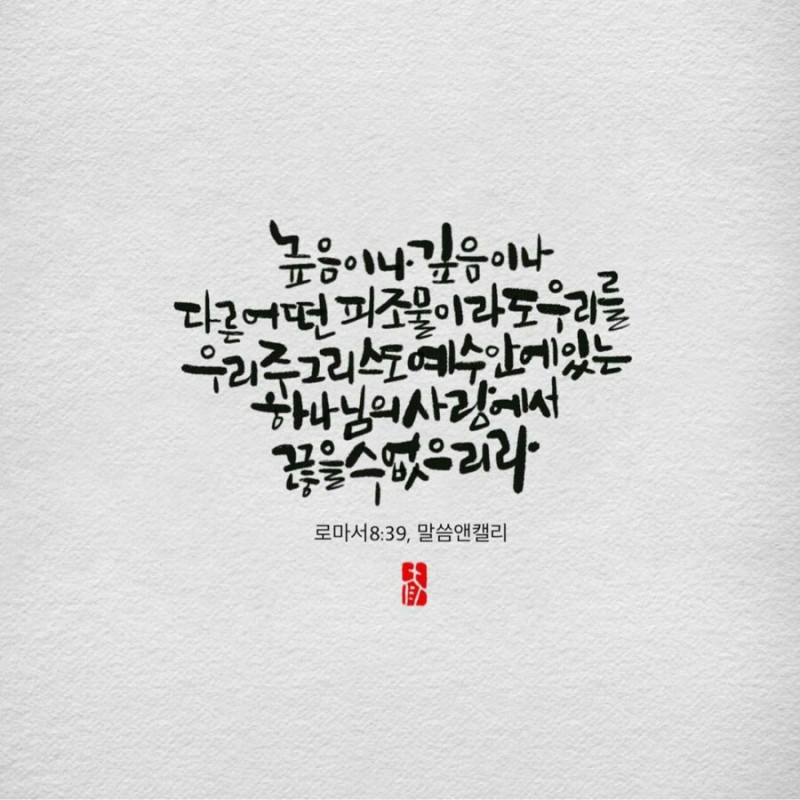 높음이나 깊음이나
다른 어떤 피조물이라도 우리를
우리 주 그리스도 예수 안에 있는
하나님의 사랑에서
끊을 수 없으리라.
로마서8:39, 말씀앤캘리